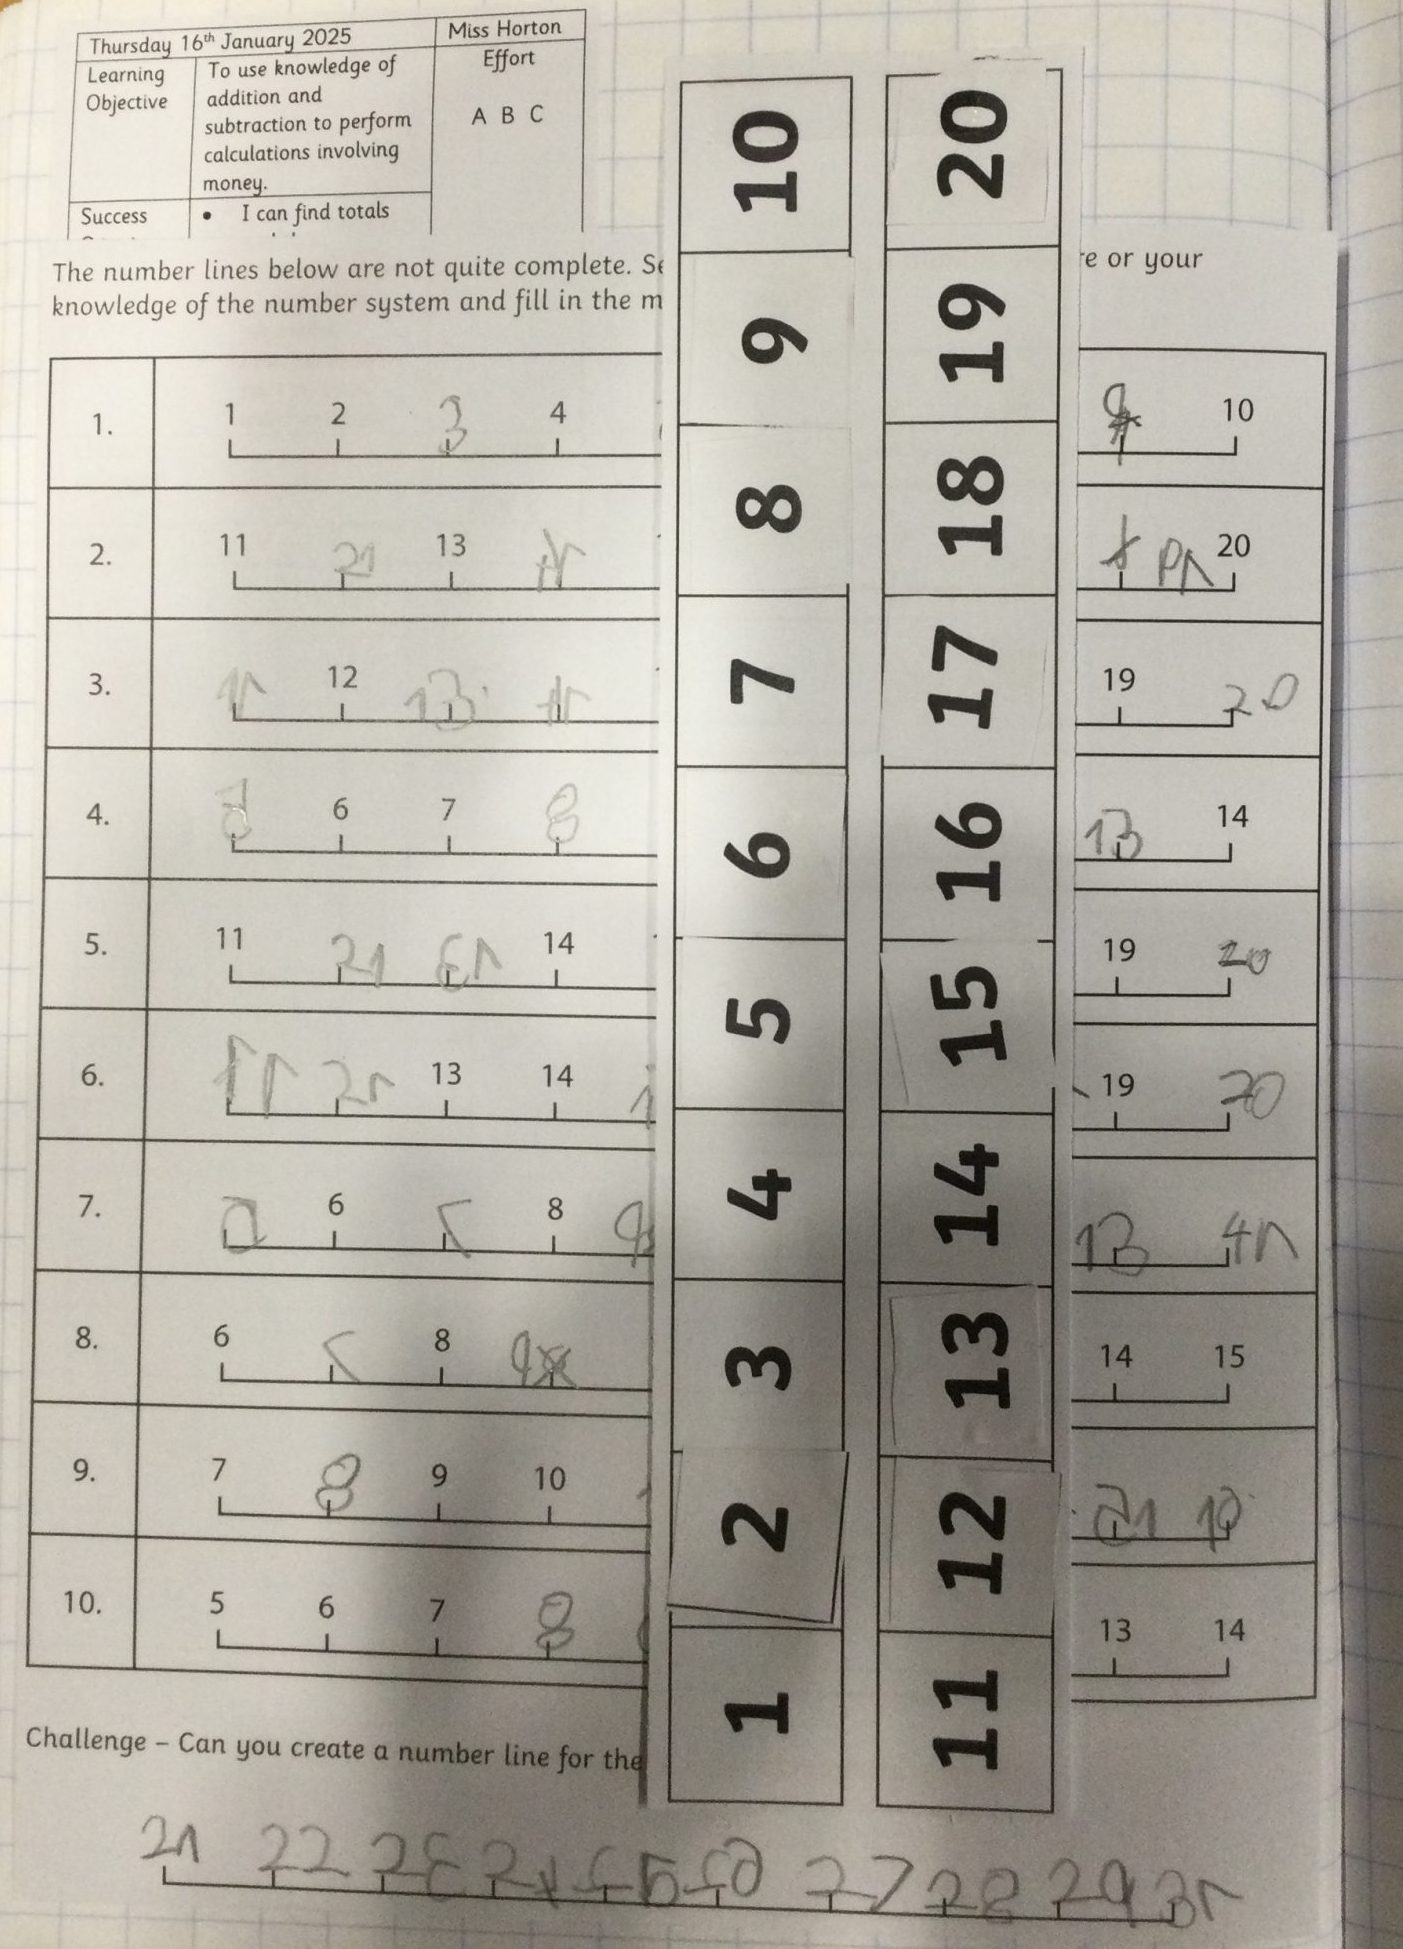 Thursday 16th January 2025 Miss Horton
Learning Objective To use knowledge of addition and subtraction to perform calculations involving money. Effort
A B C
Success • I can find totals
The number lines below are not quite complete. re or your
knowledge of the number system and fill in the
1. 1 2 3 4 9 10
2. 11 21 13 20
3. 12 13 19 20
4. 6 7 8 13 14
5. 11 21 14 19 20
6. 11 21 13 14 19 20
7. 6 7 8 9 13 41
8. 6 7 8 9 14 15
9. 7 8 9 10
10. 5 6 7 8 13 14
Challenge – Can you create a number line for the
21 22 23 24 27 28 29 31
10
9
8
7
6
5
4
3
2
1
20
19
18
17
16
15
14
13
12
11